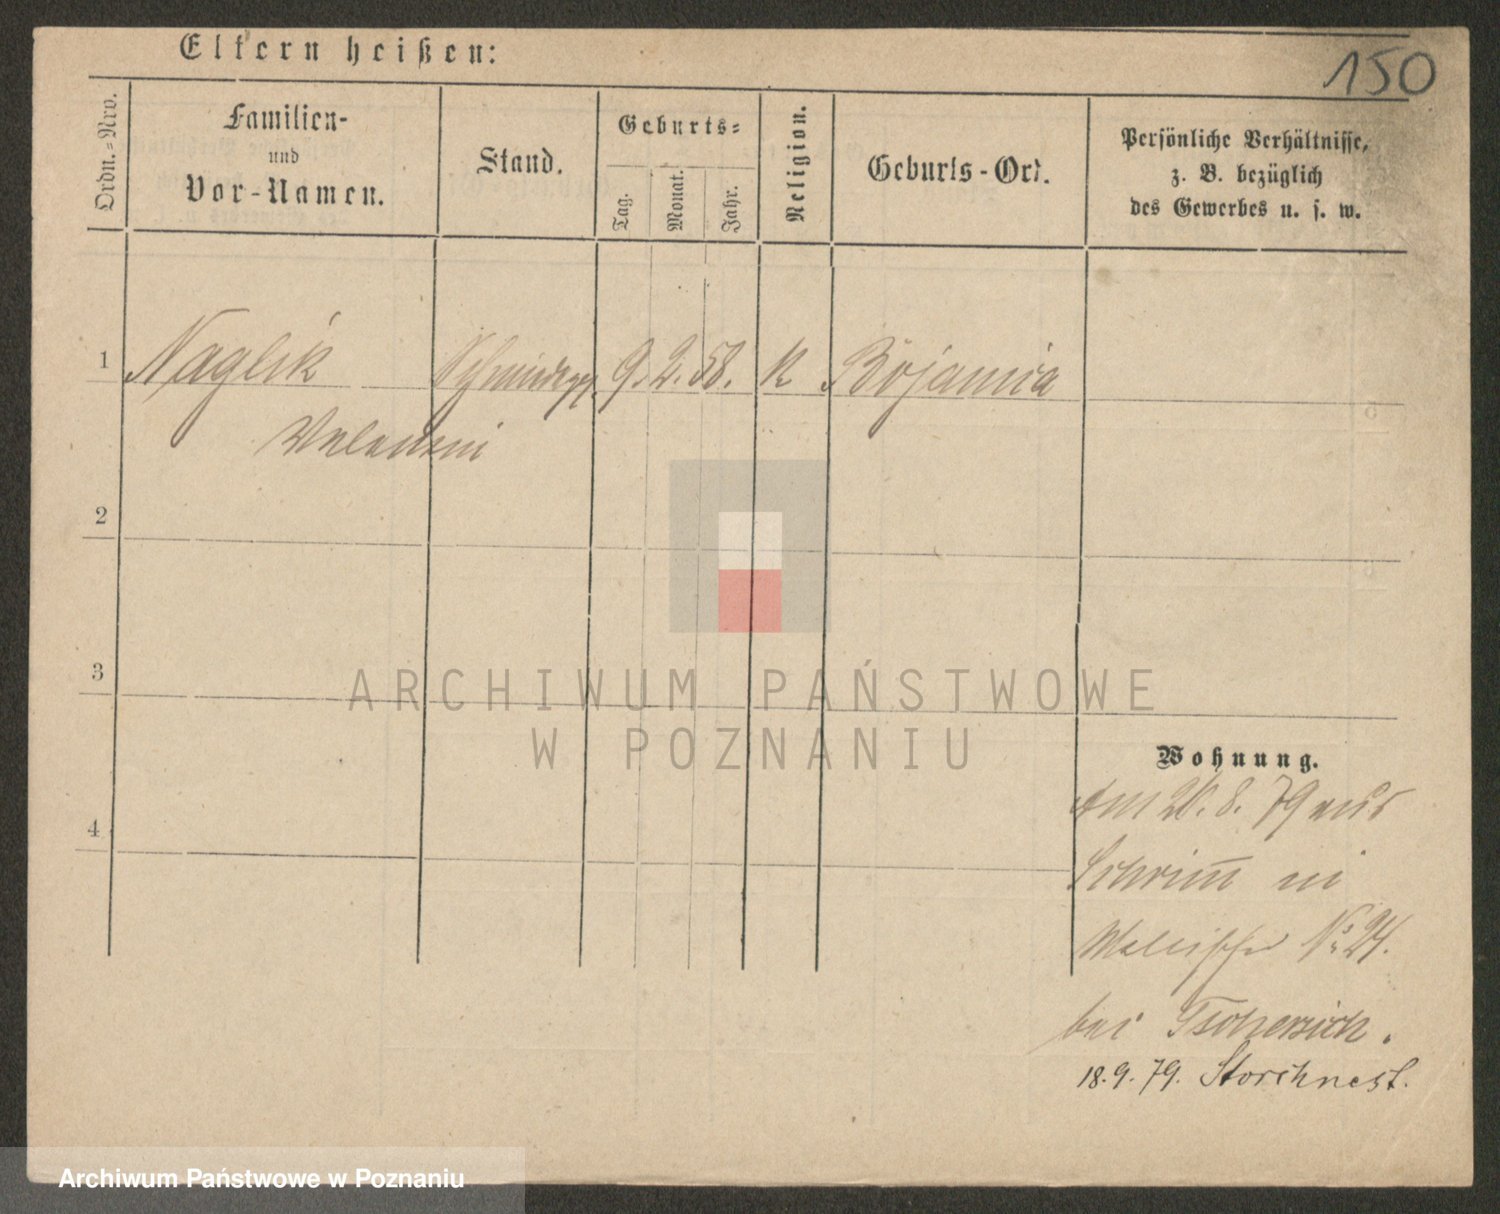 150
Eltern heißen:
Ordn.-Nro.
Familien-
und
Vor-Namen.
Stand.
Geburts-
Tag.
Monat.
Jahr.
Religion.
Geburts-Ort.
Persönliche Verhältnisse,
z. B. bezüglich
des Gewerbes u. s. w.
1 Naglik 9. 2. 58. K Bojanica
Valentin
2
3
4
ARCHIWUM PAŃSTWOWE
W POZNANIU
Wohnung.
Am 20. 8. 79 aus
Schrim̅ in
Wallischei No 24.
bei Tschersich.
18. 9. 79. Storchnest.
Archiwum Państwowe w Poznaniu